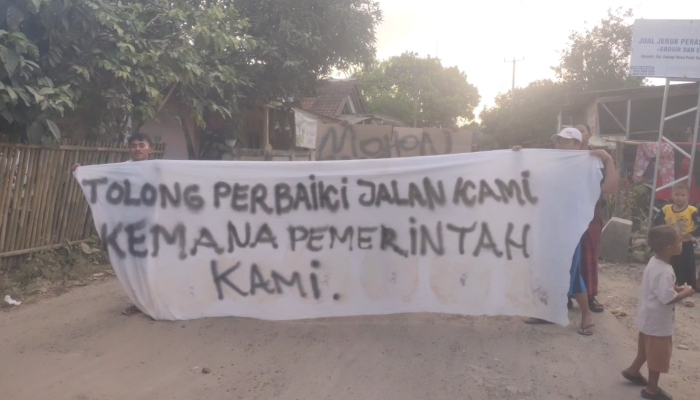 TOLONG PERBAIKI JALAN KAMI
KEMANA PEMERINTAH
KAMI.
MOHON
JUAL JERUK PERAS